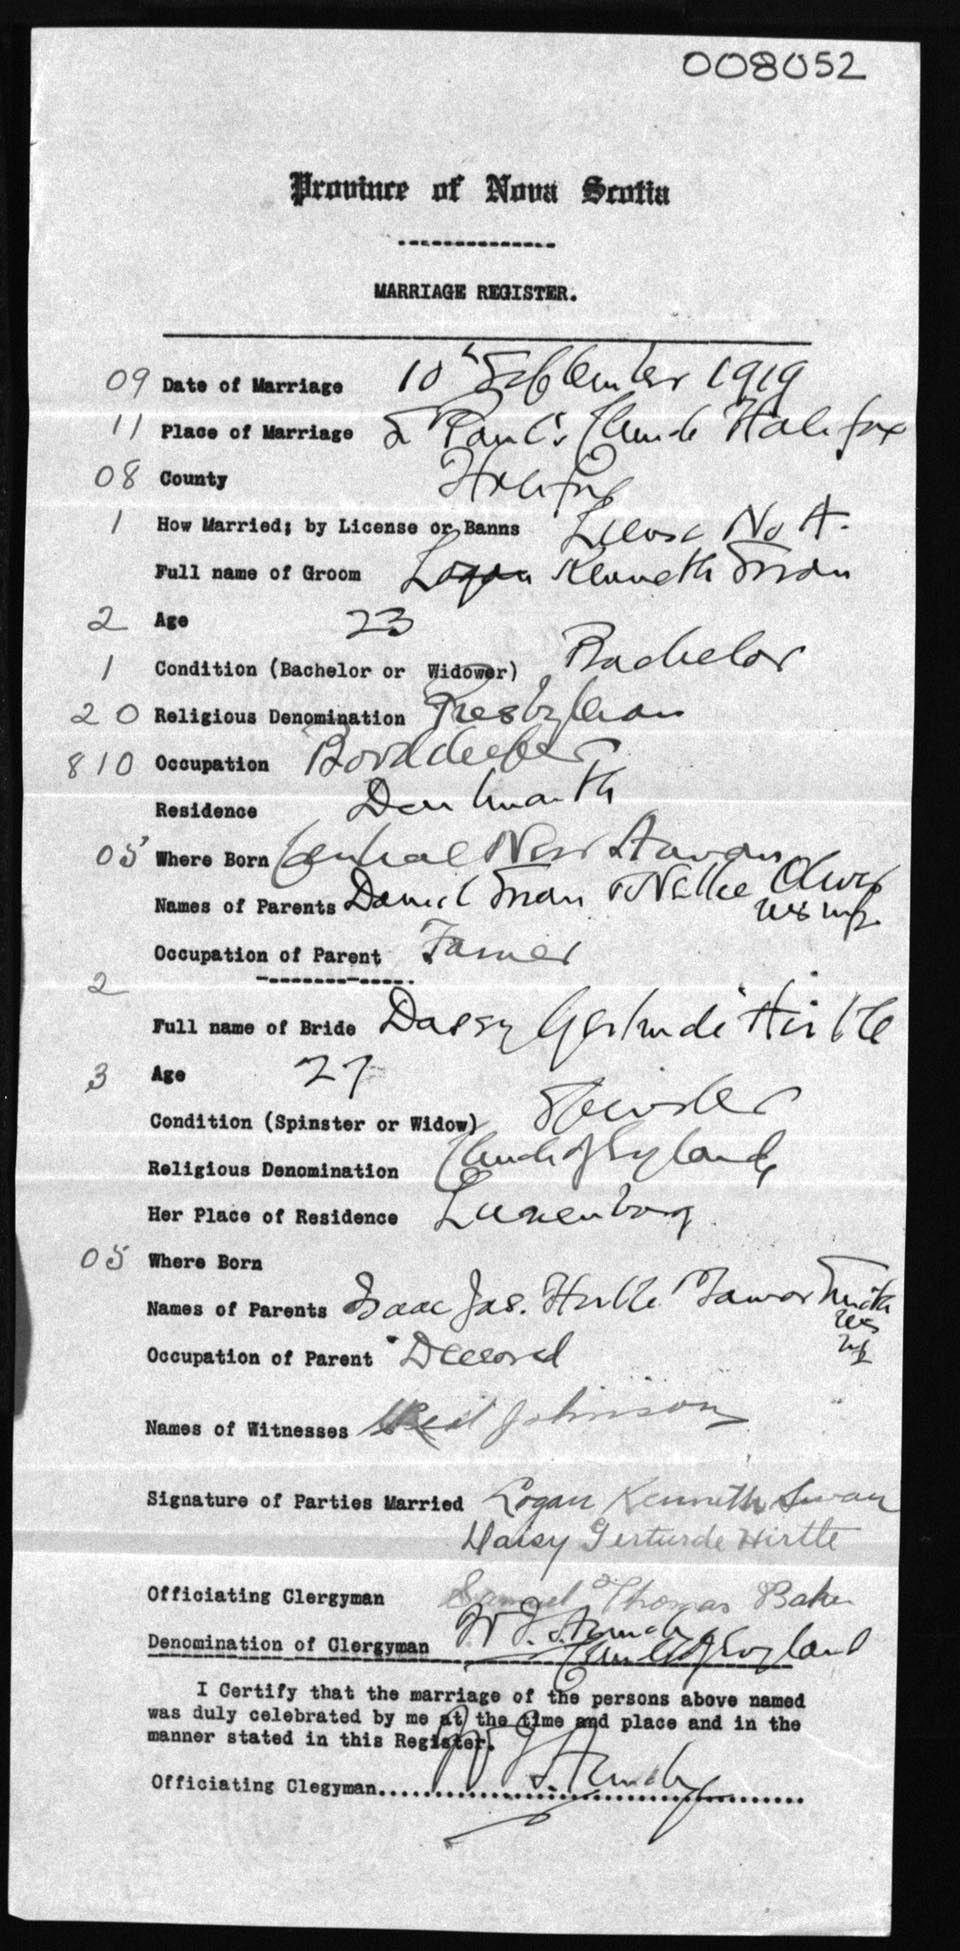 008052
Province of Nova Scotia
MARRIAGE REGISTER.
09 Date of Marriage 10th September 1919
11 Place of Marriage St Paul's Church Halifax
08 County Halifax
1 How Married; by License or Banns License No A.
Full name of Groom Logan Kenneth Swan
2 Age 23
1 Condition (Bachelor or Widower) Bachelor
20 Religious Denomination Presbyterian
810 Occupation Bookkeeper
Residence Dartmouth
05 Where Born Central New Annan
Names of Parents Daniel Swan & Nellie
his wife
Occupation of Parent Farmer
2
Full name of Bride Daisy Gertrude Hirtle
3 Age 27
Condition (Spinster or Widow) Spinster
Religious Denomination Church of England
Her Place of Residence Lunenburg
05 Where Born
Names of Parents Isaac Jas. Hirtle
his
wife
Occupation of Parent Deceased
Names of Witnesses Johnson
Signature of Parties Married Logan Kenneth Swan
Daisy Gerturde Hirtle
Samuel Thomas Baker
Officiating Clergyman
Denomination of Clergyman Church of England
I Certify that the marriage of the persons above named
was duly celebrated by me at the time and place and in the
manner stated in this Register.
Officiating Clegyman